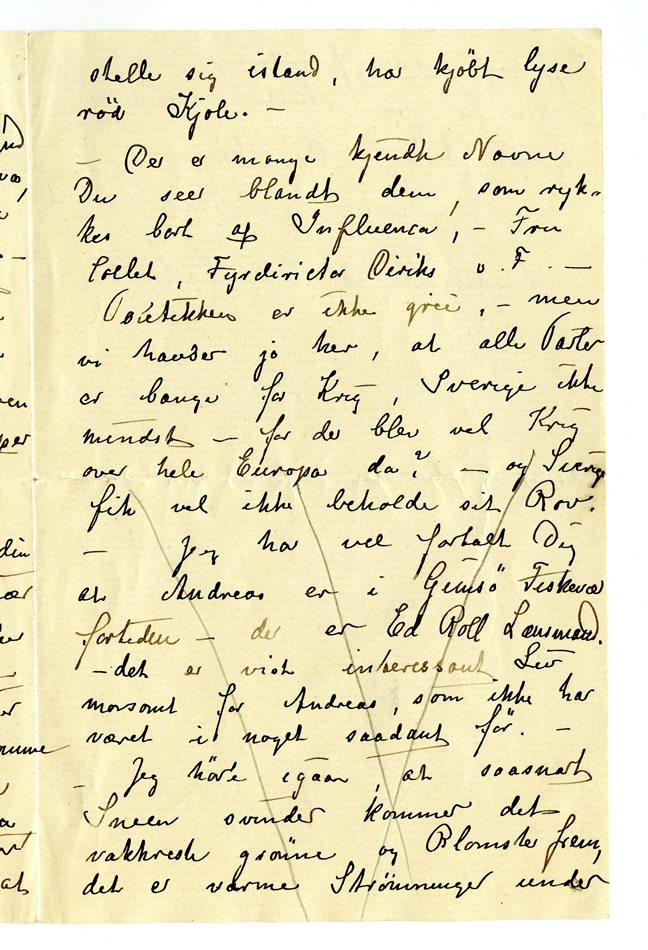 stelle sig istand, har kjöbt lyse
rød Kjole. —
— Der er mange kjendte Navne
Du seer blandt dem, som ryk-
kes bort af Influenca, — Fru
Collet, Fyrdirictør Diriks o. F. —
Politikken er ikke grei, — men
vi haaber jo her, at alle Parter
er bange for Krig, Sverige ikke
mindst — for der blev vel Krig
over hele Europa da? — og Sverige
fik vel ikke beholde sit Rov.
— Jeg har vel fortalt Dig
at Andreas er i Gimsö Fiskevær
fortiden — der er Ed Roll Lensmand.
— det er vist interessant Liv
morsomt for Andreas, som ikke har
været i noget saadant för. —
— Jeg hörte igaar, at saasnart
Sneen svinder kommer det
vakkreste grønne og Blomster frem,
det er varme Strømninger under